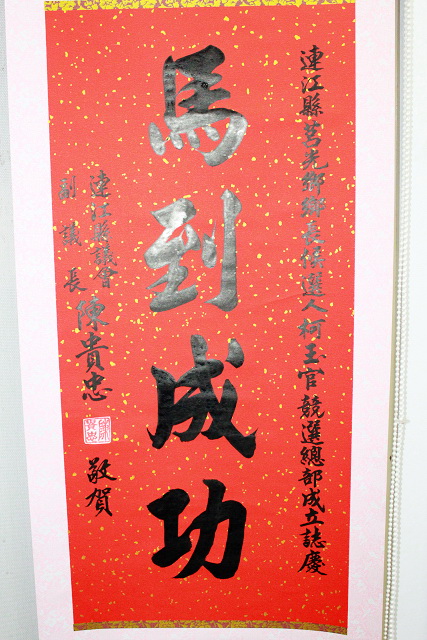 連江縣莒光鄉鄉長候選人柯玉官競選總部成立誌慶
馬到成功
連江縣議會
副議長
陳貴忠
敬賀